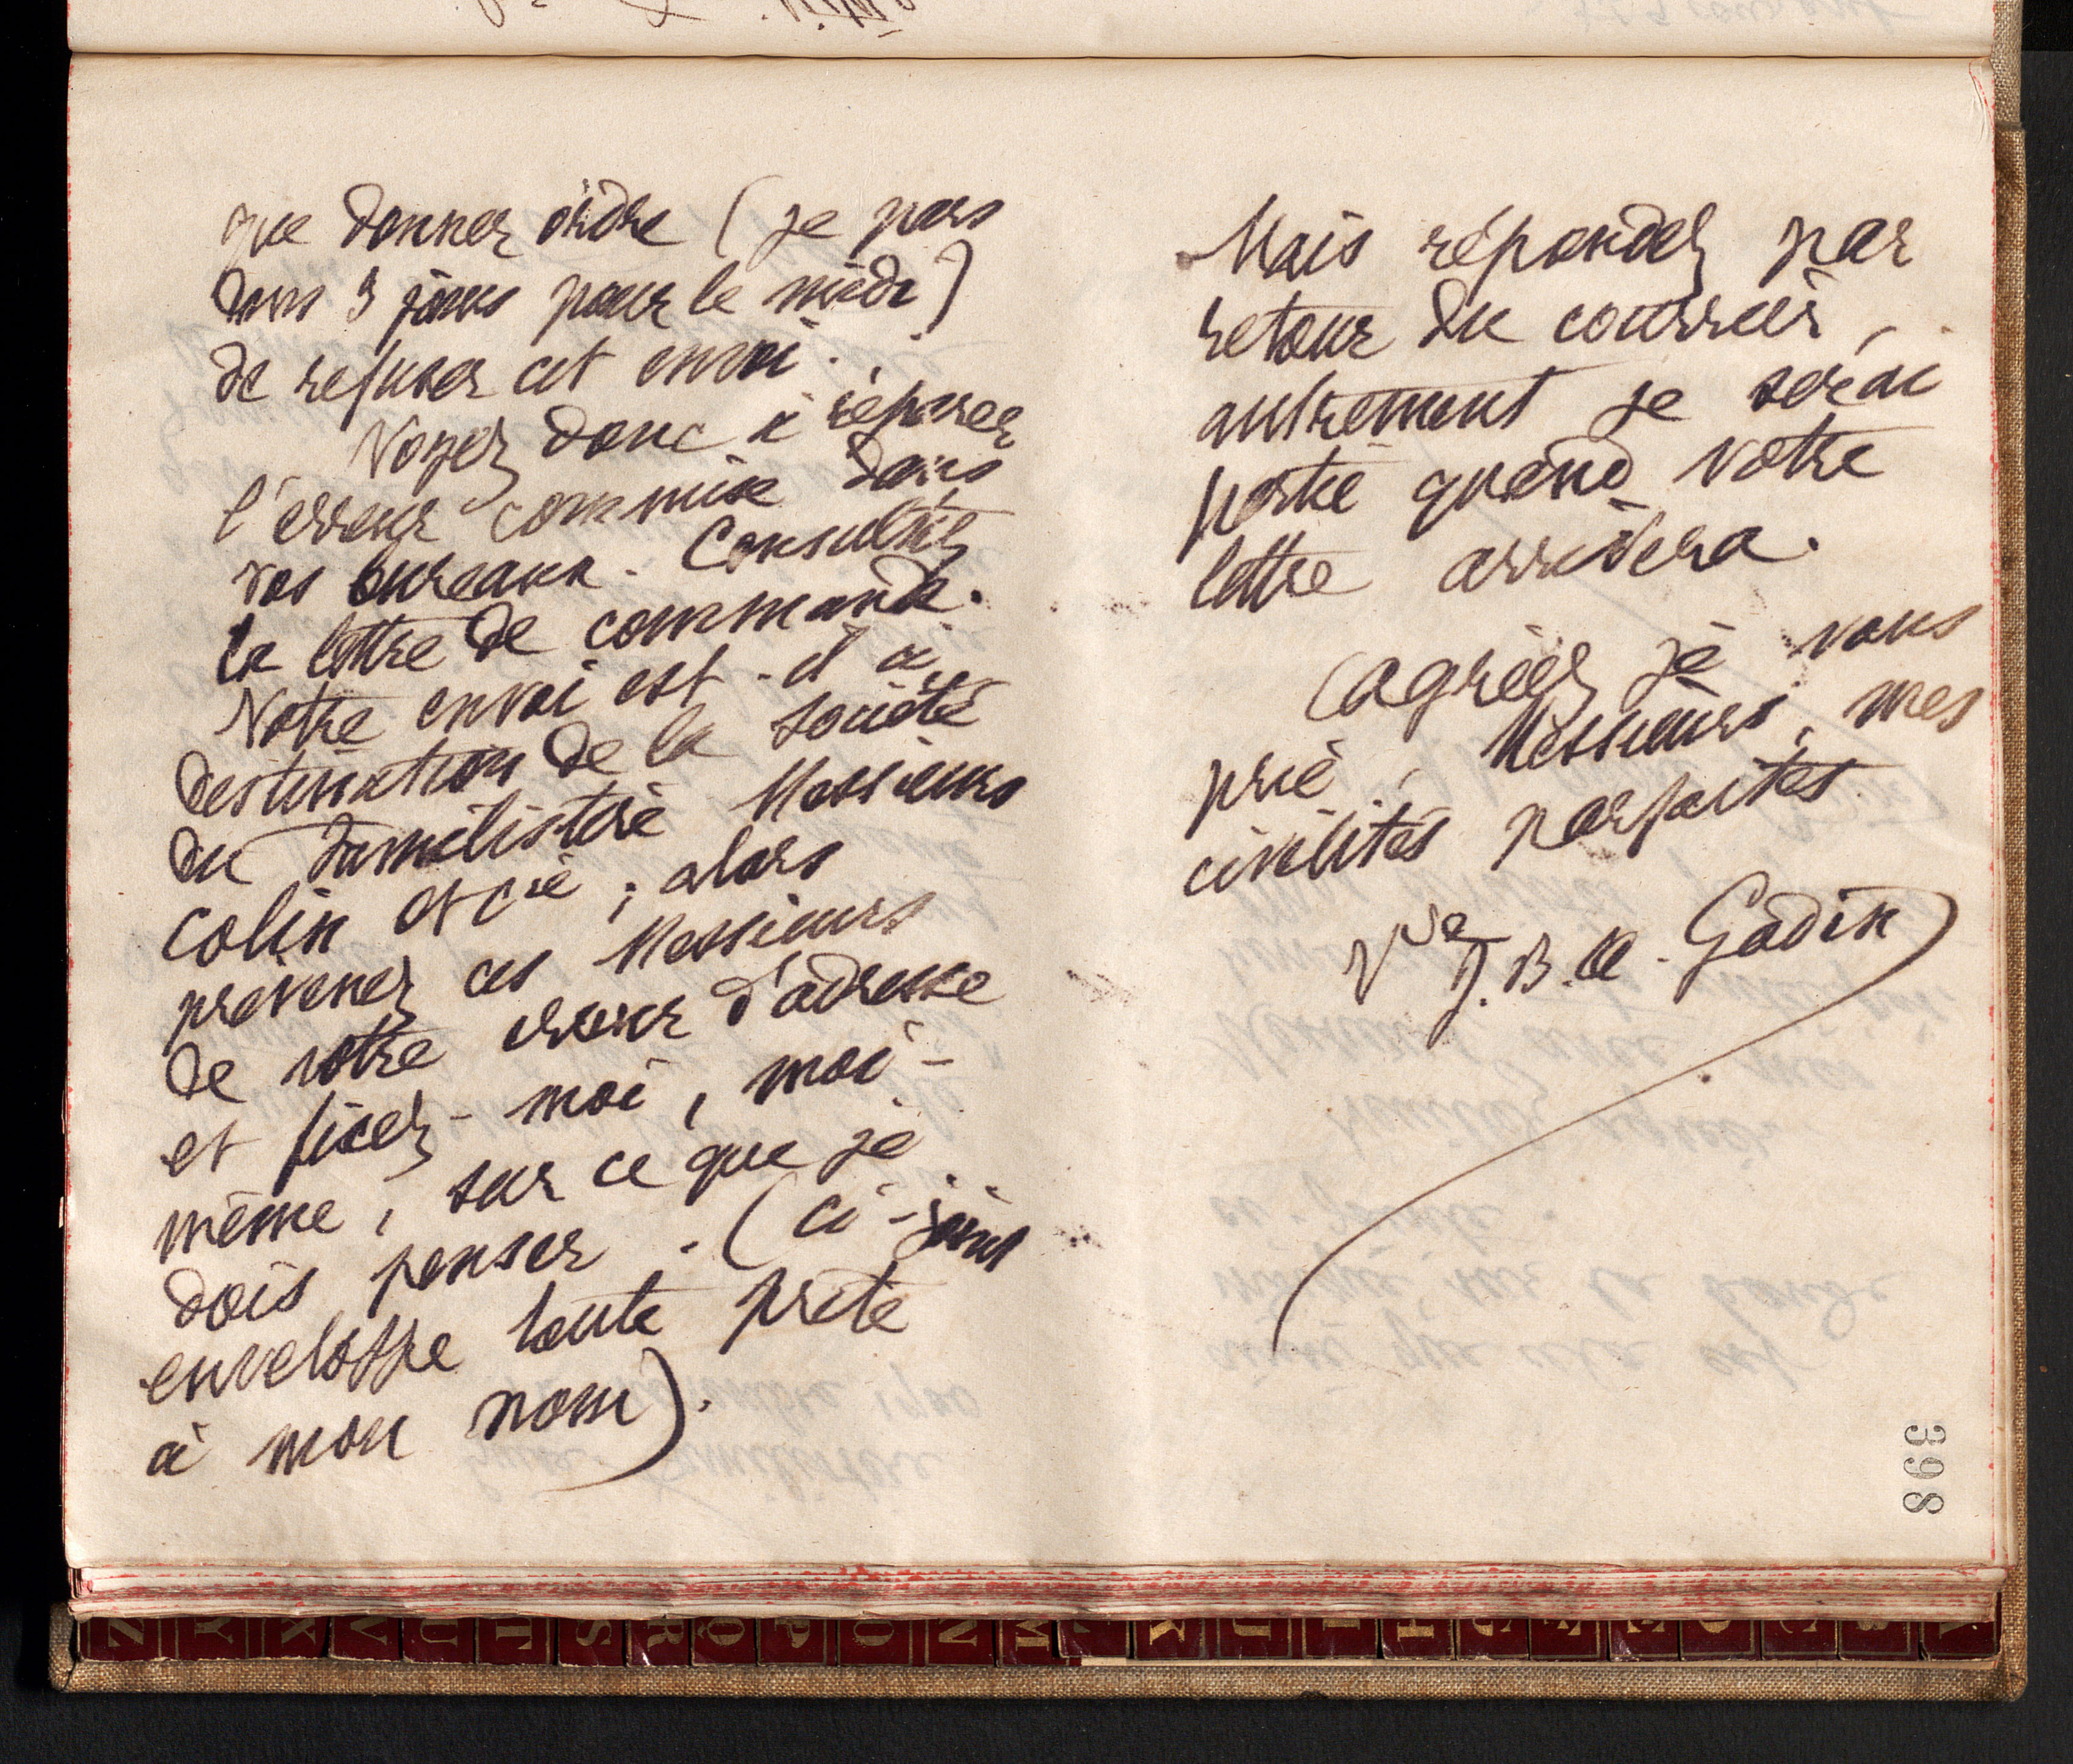 que donner ordre (je pars
dans 3 jours pour le midi)
de refuser cet envoi.
Voyez donc à réparer
l'erreur commise dans
vos bureaux. Consultez
la lettre de commande.
Votre envoi est-il à
destination de la Société
du Familistère Messieurs
Colin et Cie ; alors
prévenez ces Messieurs
de votre erreur d'adresse
et fixez-moi, moi-
même, sur ce que je
dois penser. (Ci-joint
enveloppe toute prête
à mon nom).
Mais répondez par
retour du courrier,
autrement je serai
partie quand votre
lettre arrivera.
Agréez je vous
prie, Messieurs, mes
civilités parfaites
Vve J. B. A. Godin
398
Z Y X V U T S R Q P O N M L K J I H G F E D C B A